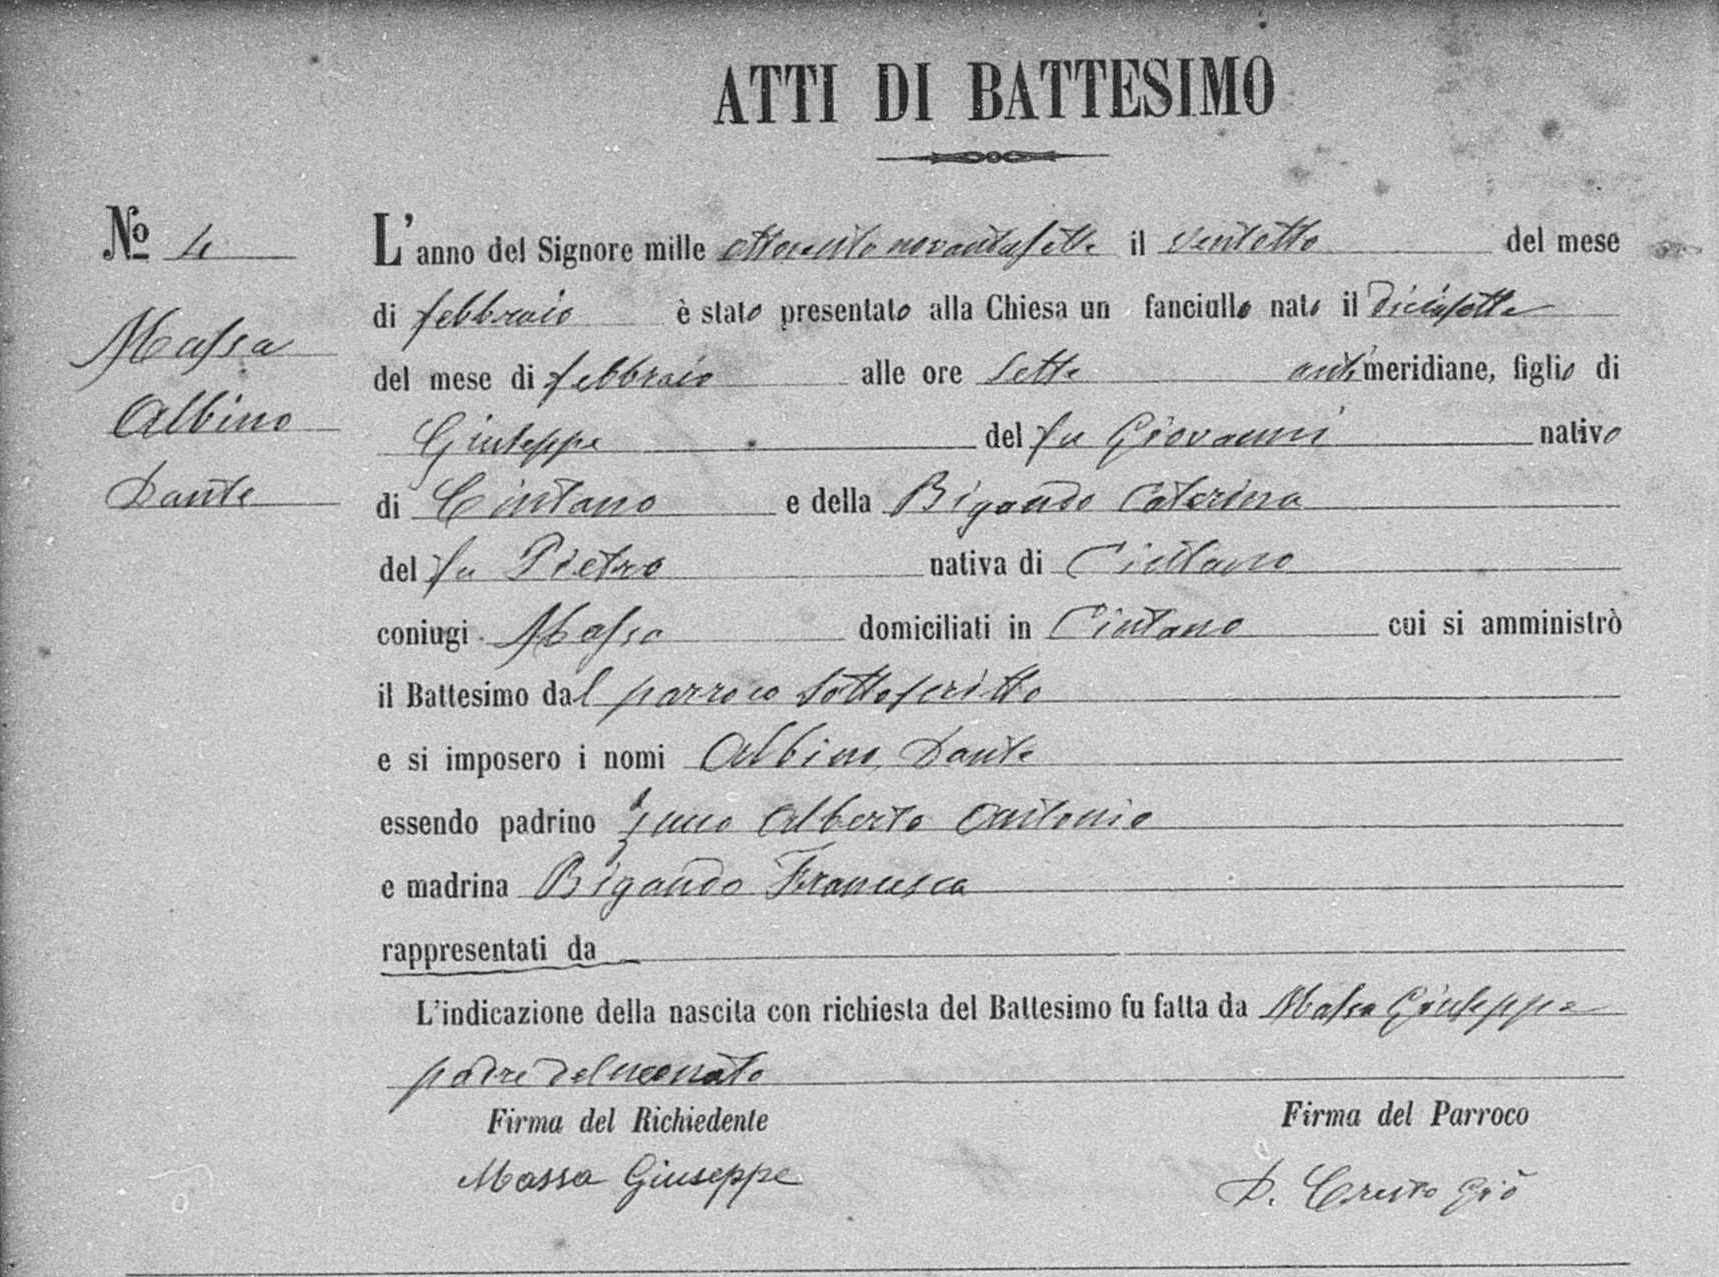 ATTI DI BATTESIMO
No 4
Massa
Albino
Dante
L'anno del Signore mille ottocento novantasette il ventotto del mese
di febbraio è stato presentato alla Chiesa un fanciullo nato il diciasette
del mese di febbraio alle ore sette antimeridiane, figlio di
Giuseppe del fu Giovanni nativo
di Cintano e della Bigando Caterina
del fu Pietro nativa di Cintano
coniugi Massa domiciliati in Cintano cui si amministrò
il Battesimo dal parroco sottoscritto
e si imposero i nomi Albino, Dante
essendo padrino Alberto Antonio
e madrina Bigando Francesca
rappresentati da
L'indicazione della nascita con richiesta del Battesimo fu fatta da Massa Giuseppe
padre del neonato
Firma del Richiedente
Firma del Parroco
Massa Giuseppe
D. Gio